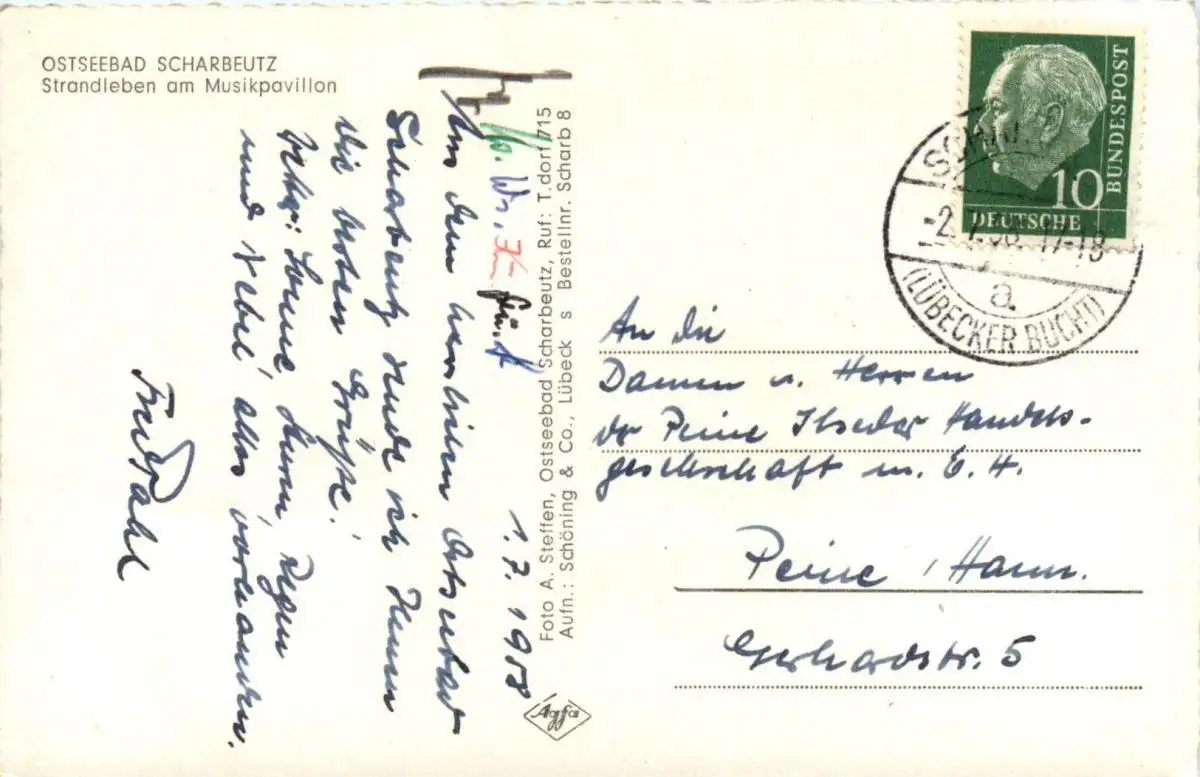 OSTSEEBAD SCHARBEUTZ
Strandleben am Musikpavillon
1.7.1958
Aus dem herrlichen Ostseebad
Scharbeutz sende ich Ihnen
die besten Grüße!
Sonne, Sturm, Regen
und Nebel alles vorhanden.
Foto A. Steffen, Ostseebad Scharbeutz, Ruf: T.dorf 715
Aufn.: Schöning & Co., Lübeck s Bestellnr. Scharb 8
Agfa
DEUTSCHE
BUNDESPOST
10
17-18
a
(LÜBECKER BUCHT)
An die
Damen u. Herren
der Peine Ilseder Handels-
gesellschaft m. b. H.
Peine, Hann.
Gerhardstr. 5